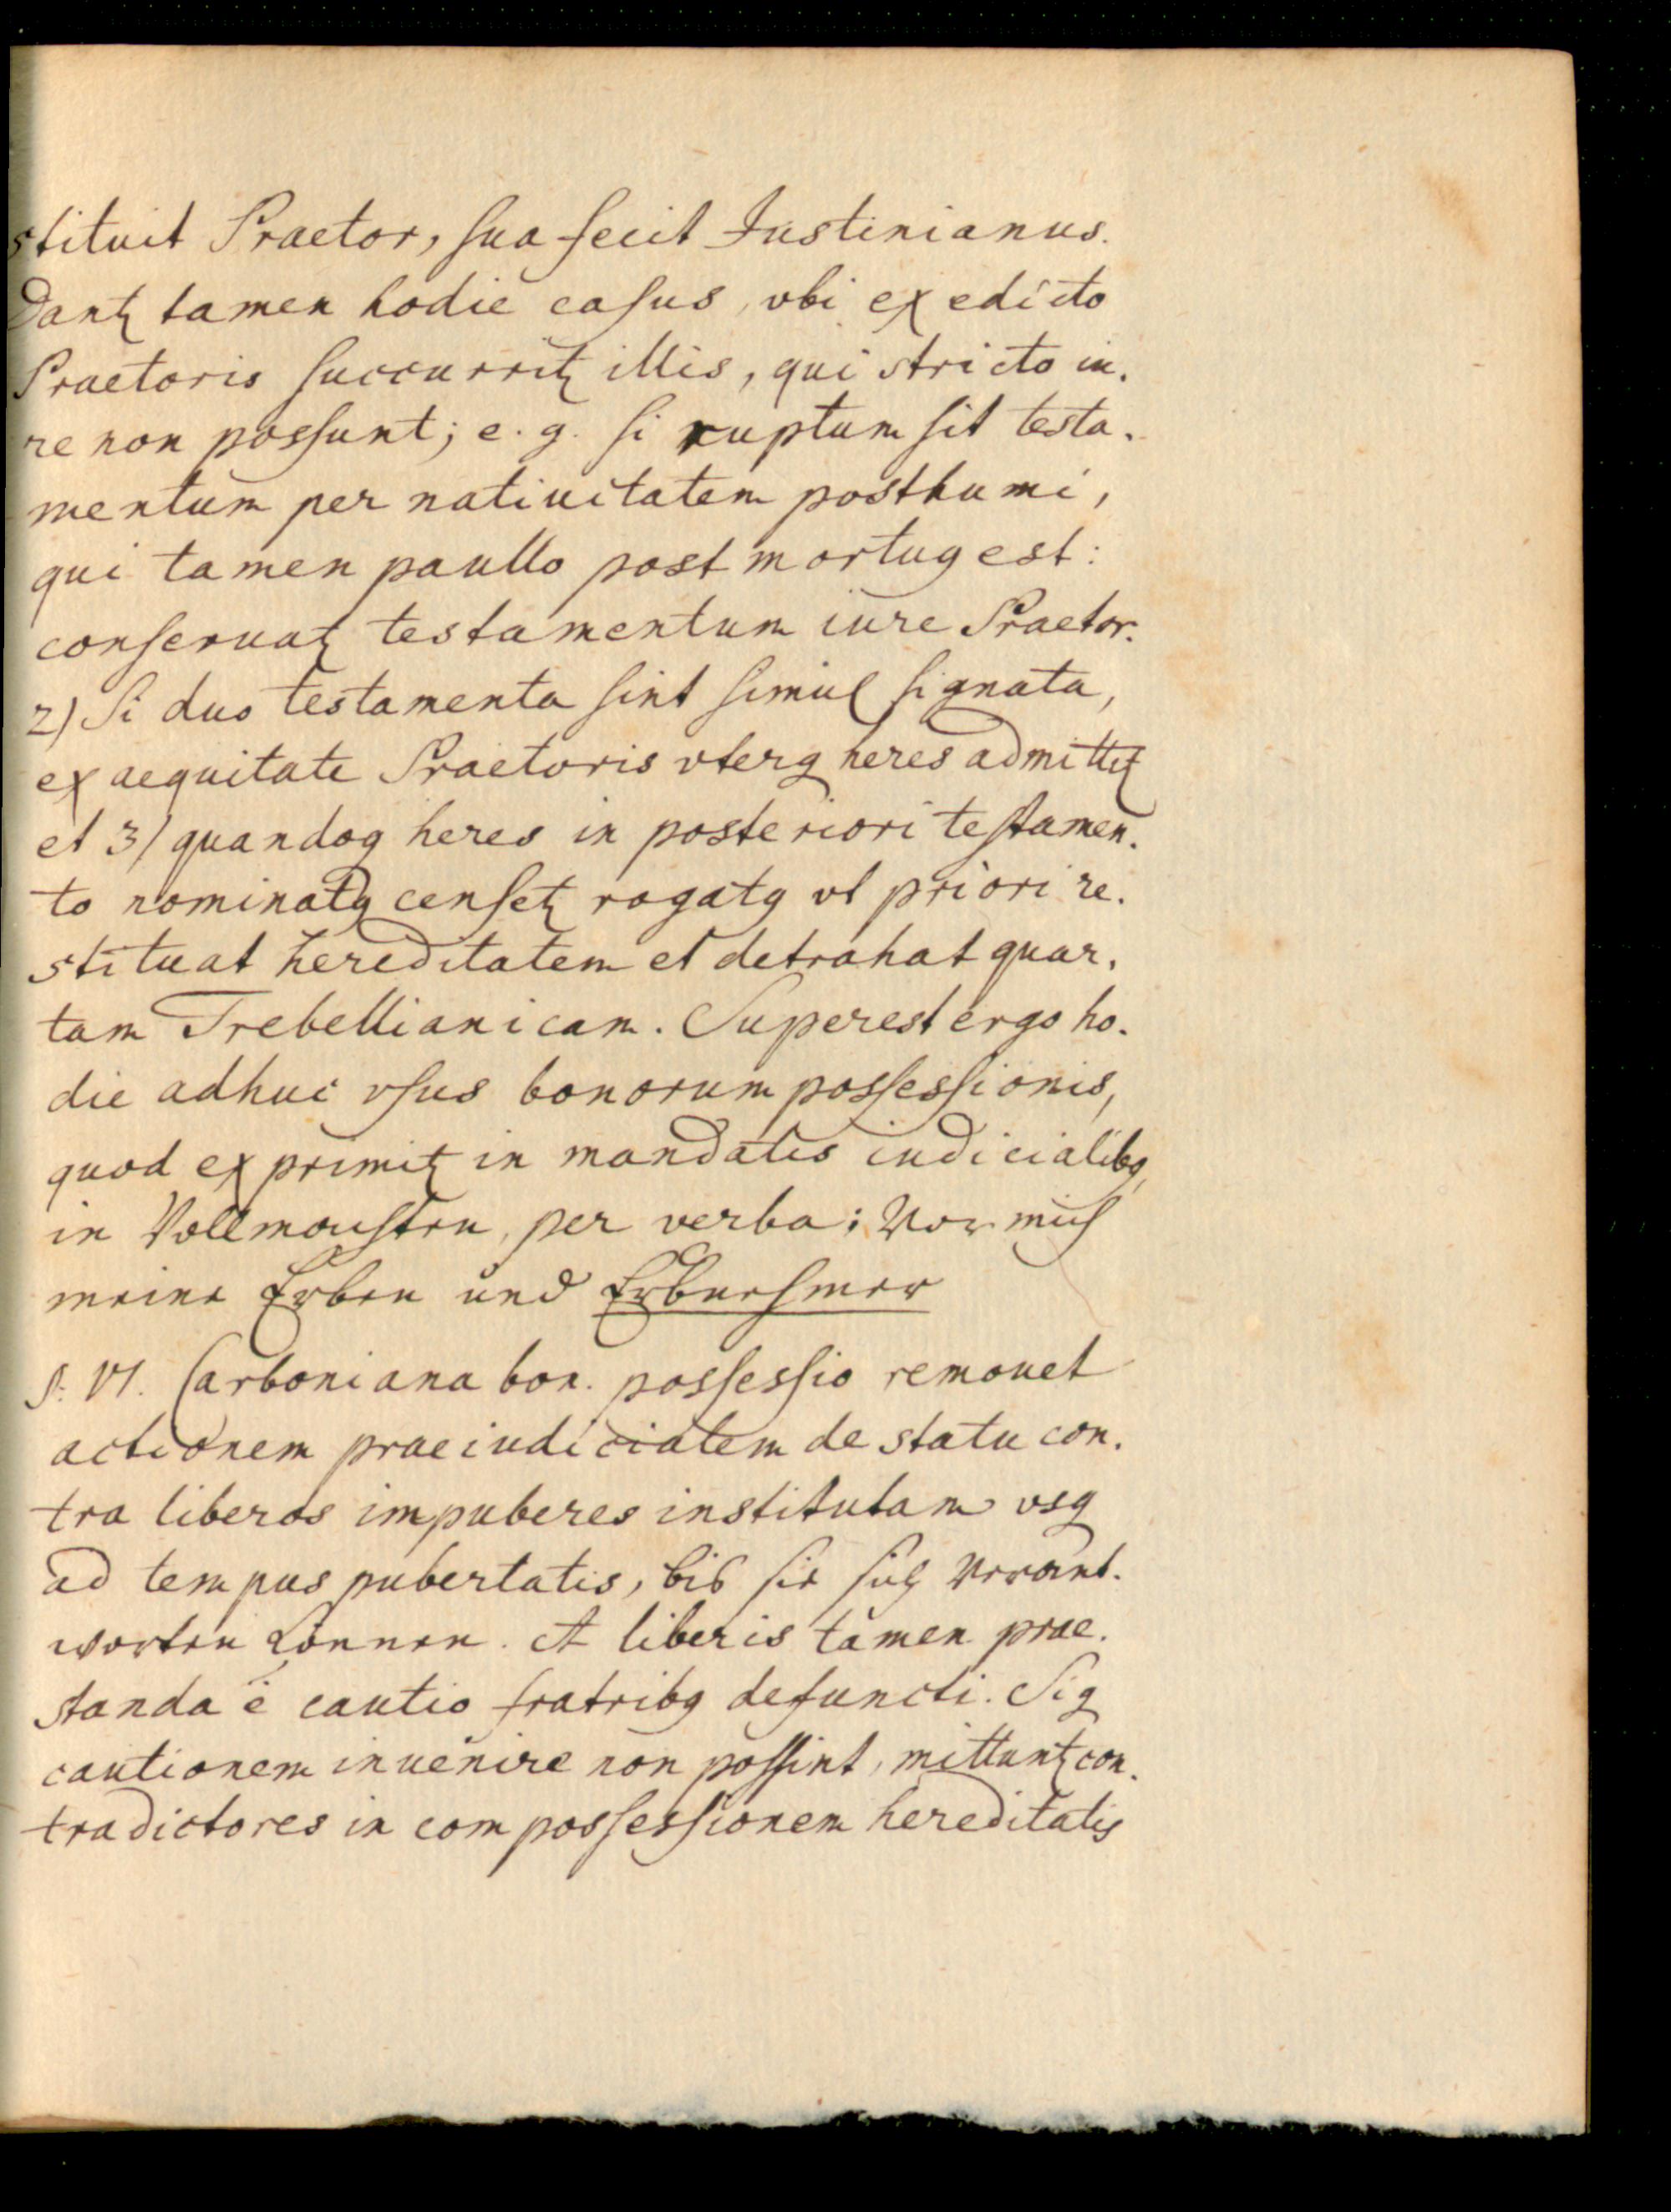 stituit Praetor, sua fecit Justinianus.
Dantꝭ tamen hodie casus, vbi ex edicto
Praetoris succurritꝭ illis, qui stricto iu-
re non possunt; e. g. si ruptum sit testa-
mentum per natiuitatem posthumi,
qui tamen paullo post mortuꝰ est:
conseruatꝭ testamentum iure Praetor.
2) Si duo testamenta sint simul signata,
ex aequitate Praetoris vterq heres admittitꝭ
et 3) quandoq heres in posteriori testamen-
to nominatꝰ censetꝭ rogatꝰ vt priori re-
stituat hereditatem et detrahat quar-
tam Trebellianicam. Superest ergo ho-
die adhuc vsus bonorum possessionis,
quod exprimitꝭ in mandatis iudicialibꝰ,
in Vollmachten, per verba: Vor mich
meine Erben und Erbnehmer
§. VI. Carboniana bon. possessio remouet
actionem praeiudicialem de statu con-
tra liberos impuberes institutam vsq
ad tempus pubertatis, biß sie sich verant-
worten können. A liberis tamen prae-
standa ē cautio fratribꝰ defuncti. Si q
cautionem inuenire non possint, mittuntꝭ con-
tradictores in compossessionem hereditatis